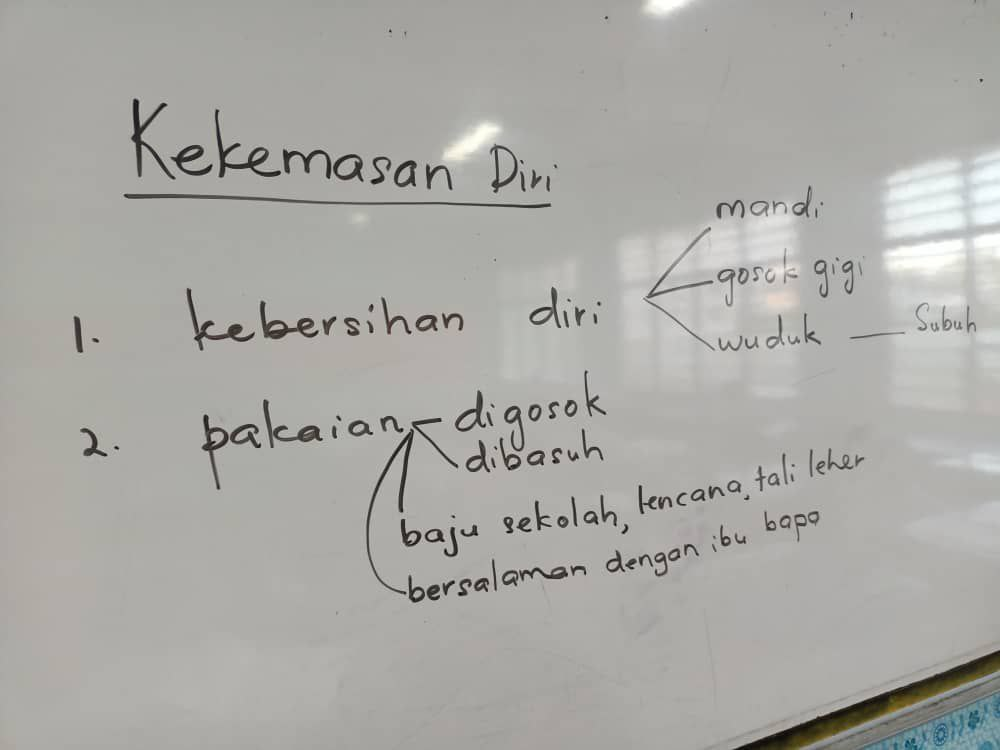 Kekemasan Diri
1. kebersihan diri
mandi
gosok gigi
wuduk — Subuh
2. pakaian - digosok
dibasuh
baju sekolah, lencana, tali leher
bersalaman dengan ibu bapa